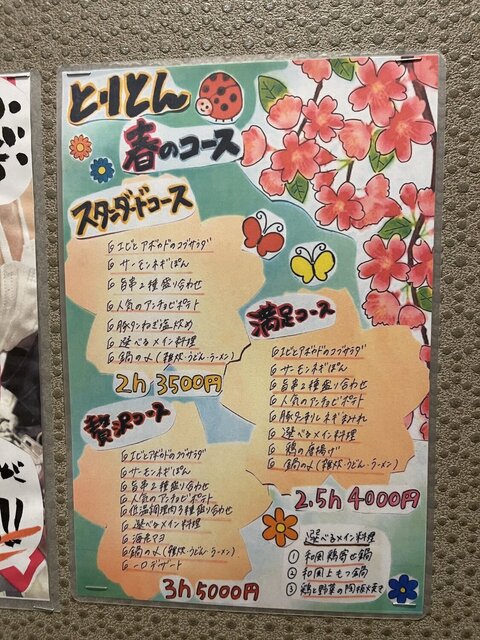 とりとん
春のコース
スタンダードコース
エビとアボカドのコブサラダ
サーモンネギぽん
旨串2種盛り合わせ
人気のアンチョビポテト
豚タンねぎ塩炒め
選べるメイン料理
鍋の〆(雑炊・うどん・ラーメン)
2h 3500円
満足コース
エビとアボカドのコブサラダ
サーモンネギぽん
旨串2種盛り合わせ
人気のアンチョビポテト
選べるメイン料理
鶏の唐揚げ
鍋の〆(雑炊・うどん・ラーメン)
2.5h 4000円
贅沢コース
エビとアボカドのコブサラダ
サーモンネギぽん
旨串2種盛り合わせ
人気のアンチョビポテト
低温調理肉3種盛り合わせ
選べるメイン料理
海老マヨ
鍋の〆(雑炊・うどん・ラーメン)
一口デザート
3h 5000円
選べるメイン料理
① 和風鶏寄せ鍋
② 和風上もつ鍋
③ 鶏と野菜の陶板焼き